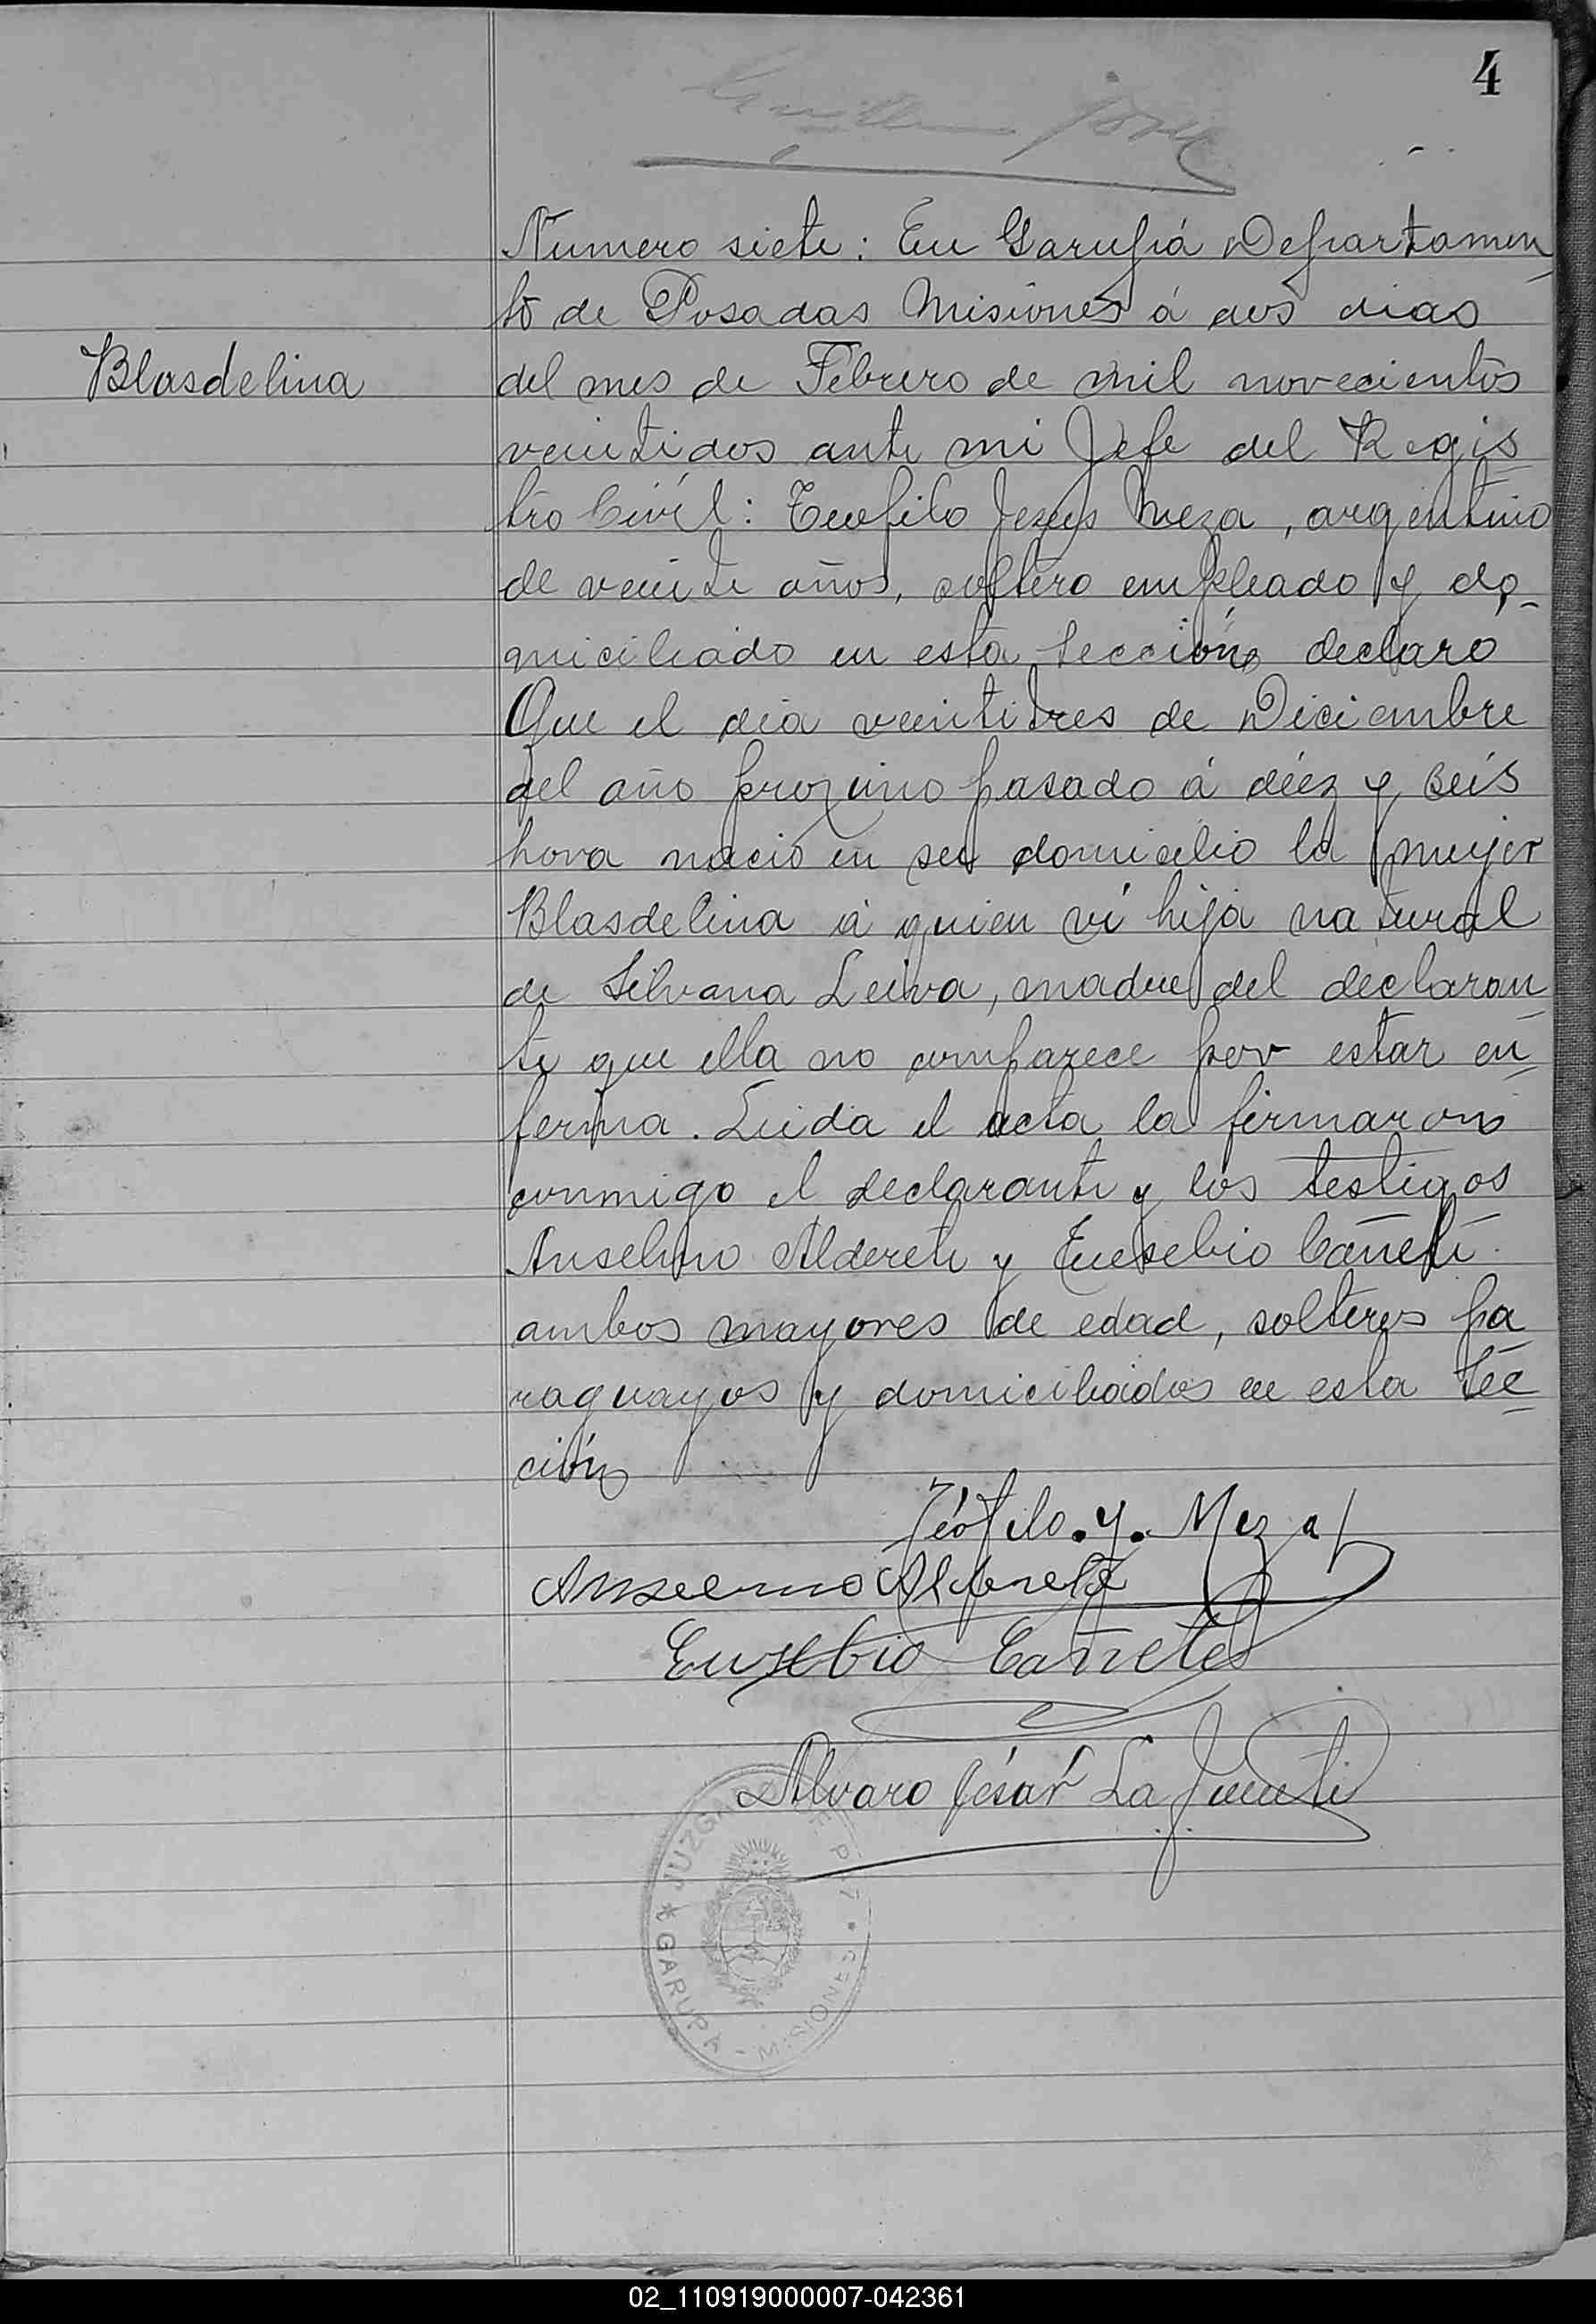 4
Numero siete: En Garupá Departamen
to de Posadas Misiones á dos dias
Blasdelina
del mes de Febrero de mil novecientos
veintidos ante mi Jefe del Regis
tro Civil: Teofilo Jesus Meza, argentino
de veinte años, soltero empleado y do-
miciliado en esta sección declaró
Que el dia veintitres de Diciembre
del año proximo pasado á diez y seis
hora nació en su domicilio la mujer
Blasdelina á quien vi hija natural
de Silvana Leiva, madre del declaran
te que ella no comparece por estar en
ferma. Leida el acta la firmaron
conmigo el declarante y los testigos
Anselmo Alderete y Eusebio Cañete
ambos mayores de edad, solteros pa
raguayos y domiciliados en esta Sec
ción
Teófilo.Y. Meza
Anselmo Alderete
Eusebio Cañete
Alvaro César Lafuente
JUZGADO DE PAZ • MISIONES - GARUPA ★
02_110919000007-042361